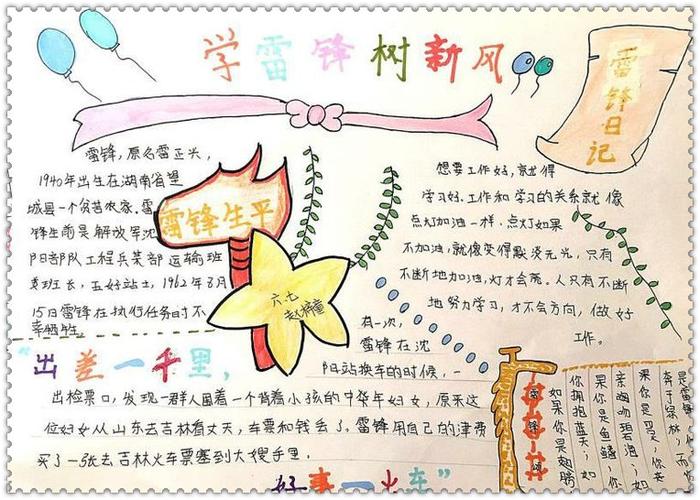 学雷锋树新风
雷锋日记
雷锋,原名雷正兴,
1940年出生在湖南省望
城县一个贫苦农家.雷
锋生前是解放军沈
阳部队工程兵某部运输班
班长,五好战士,1962年8月
15日雷锋在执行任务时不
幸牺牲.
雷锋生平
六七
想要工作好,就得
学习好.工作和学习的关系就像
点灯加油一样.点灯如果
不加油,就像变得黯淡无光,只有
不断地加油,灯才会亮.人只有不断
地努力学习,才不会方向,做好
工作。
"出差一千里,
有一次,
雷锋在沈
阳站换车的时候,一
出检票口,发现一群人围着一个背着小孩的中年妇女,原来这
位妇女从山东去吉林看丈夫,车票和钱丢了。雷锋用自己的津费
买了一张去吉林火车票塞到大嫂手里.
好事一火车"
雷锋颂
如果你是翅膀
你拥抱蓝天;如
果你是鱼鳞,你
亲吻碧海;如